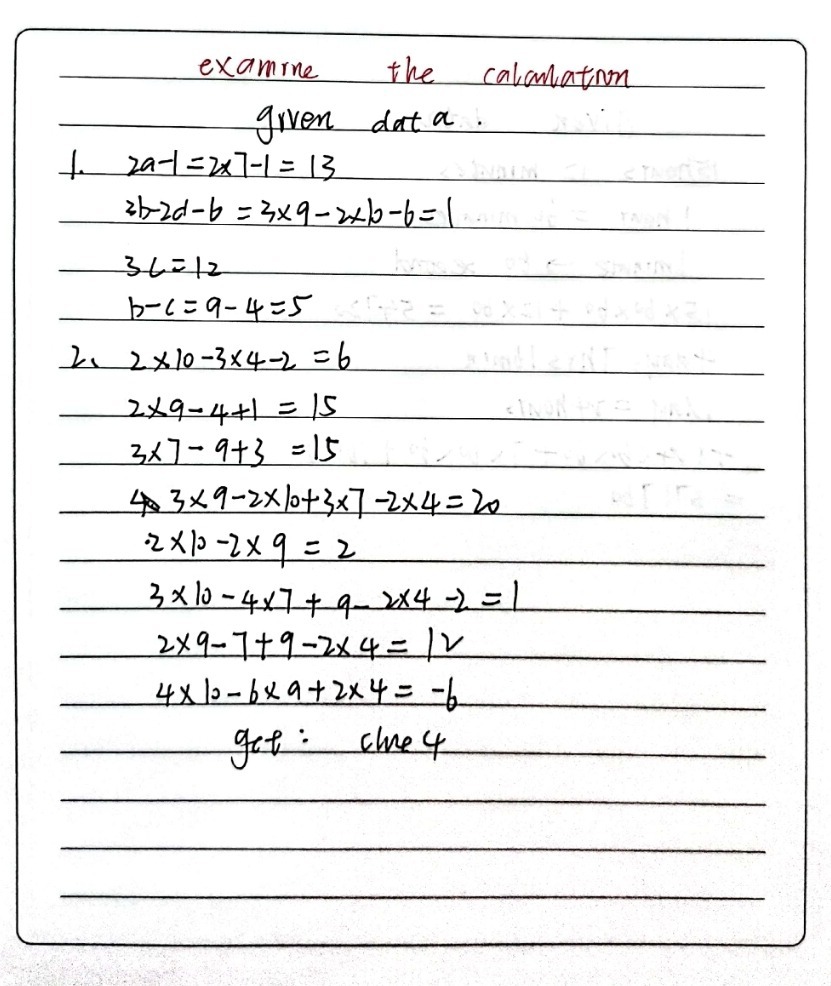 examine the calculation
given data.
1. 2a-1=2x7-1=13
3b-2d-6=3x9-2x10-6=1
3c=12
b-c=9-4=5
2、2x10-3x4-2=6
2x9-4+1=15
3x7-9+3=15
3x9-2x10+3x7-2x4=20
2x10-2x9=2
3x10-4x7+9-2x4-2=1
2x9-7+9-2x4=12
4x10-6x9+2x4=-6
get: clue 4